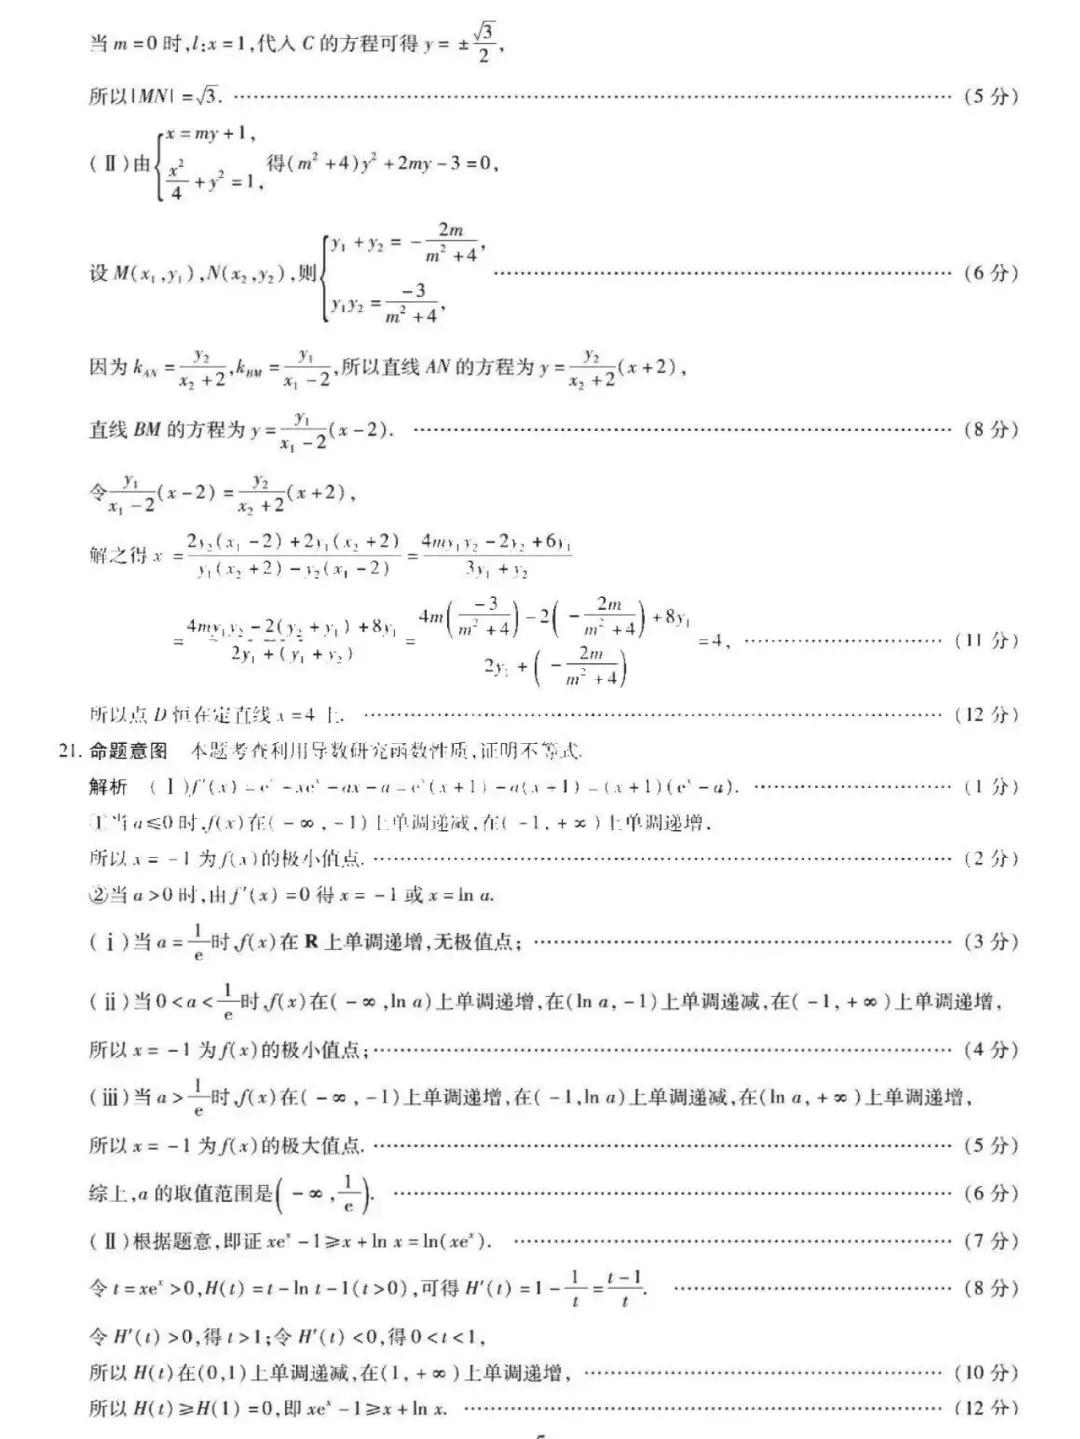 当 m = 0 时, l: x = 1, 代入 C 的方程可得 y = ±√3/2,
所以|MN| = √3. ………… (5 分)
(Ⅱ)由{x = my + 1, x²/4 + y² = 1, 得(m² + 4)y² + 2my - 3 = 0,
设 M(x₁, y₁), N(x₂, y₂), 则{y₁ + y₂ = -2m/(m² + 4), y₁y₂ = -3/(m² + 4), ………… (6 分)
因为 k_AN = y₂/(x₂ + 2), k_BM = y₁/(x₁ - 2), 所以直线 AN 的方程为 y = y₂/(x₂ + 2)(x + 2),
直线 BM 的方程为 y = y₁/(x₁ - 2)(x - 2). ………… (8 分)
令 y₁/(x₁ - 2)(x - 2) = y₂/(x₂ + 2)(x + 2),
解之得 x = [2y₂(x₁ - 2) + 2y₁(x₂ + 2)]/[y₁(x₂ + 2) - y₂(x₁ - 2)] = (4my₁y₂ - 2y₂ + 6y₁)/(3y₁ + y₂)
= [4my₁y₂ - 2(y₂ + y₁) + 8y₁]/[2y₁ + (y₁ + y₂)] = [4m(-3/(m² + 4)) - 2(-2m/(m² + 4)) + 8y₁]/[2y₁ + (-2m/(m² + 4))] = 4, ………… (11 分)
所以点 D 恒在定直线 x = 4 上. ………… (12 分)
21. 命题意图 本题考查利用导数研究函数性质, 证明不等式.
解析 (Ⅰ)f′(x) = eˣ + xeˣ - ax - a = eˣ(x + 1) - a(x + 1) = (x + 1)(eˣ - a). ………… (1 分)
①当 a ≤ 0 时, f(x)在(-∞, -1)上单调递减, 在(-1, +∞)上单调递增,
所以 x = -1 为 f(x)的极小值点. ………… (2 分)
②当 a > 0 时, 由 f′(x) = 0 得 x = -1 或 x = ln a.
(ⅰ)当 a = 1/e 时, f(x)在 R 上单调递增, 无极值点; ………… (3 分)
(ⅱ)当 0 < a < 1/e 时, f(x)在(-∞, ln a)上单调递增, 在(ln a, -1)上单调递减, 在(-1, +∞)上单调递增,
所以 x = -1 为 f(x)的极小值点; ………… (4 分)
(ⅲ)当 a > 1/e 时, f(x)在(-∞, -1)上单调递增, 在(-1, ln a)上单调递减, 在(ln a, +∞)上单调递增,
所以 x = -1 为 f(x)的极大值点. ………… (5 分)
综上, a 的取值范围是(-∞, 1/e). ………… (6 分)
(Ⅱ)根据题意, 即证 xeˣ - 1 ≥ x + ln x = ln(xeˣ). ………… (7 分)
令 t = xeˣ > 0, H(t) = t - ln t - 1(t > 0), 可得 H′(t) = 1 - 1/t = (t - 1)/t. ………… (8 分)
令 H′(t) > 0, 得 t > 1; 令 H′(t) < 0, 得 0 < t < 1,
所以 H(t)在(0, 1)上单调递减, 在(1, +∞)上单调递增, ………… (10 分)
所以 H(t) ≥ H(1) = 0, 即 xeˣ - 1 ≥ x + ln x. ………… (12 分)